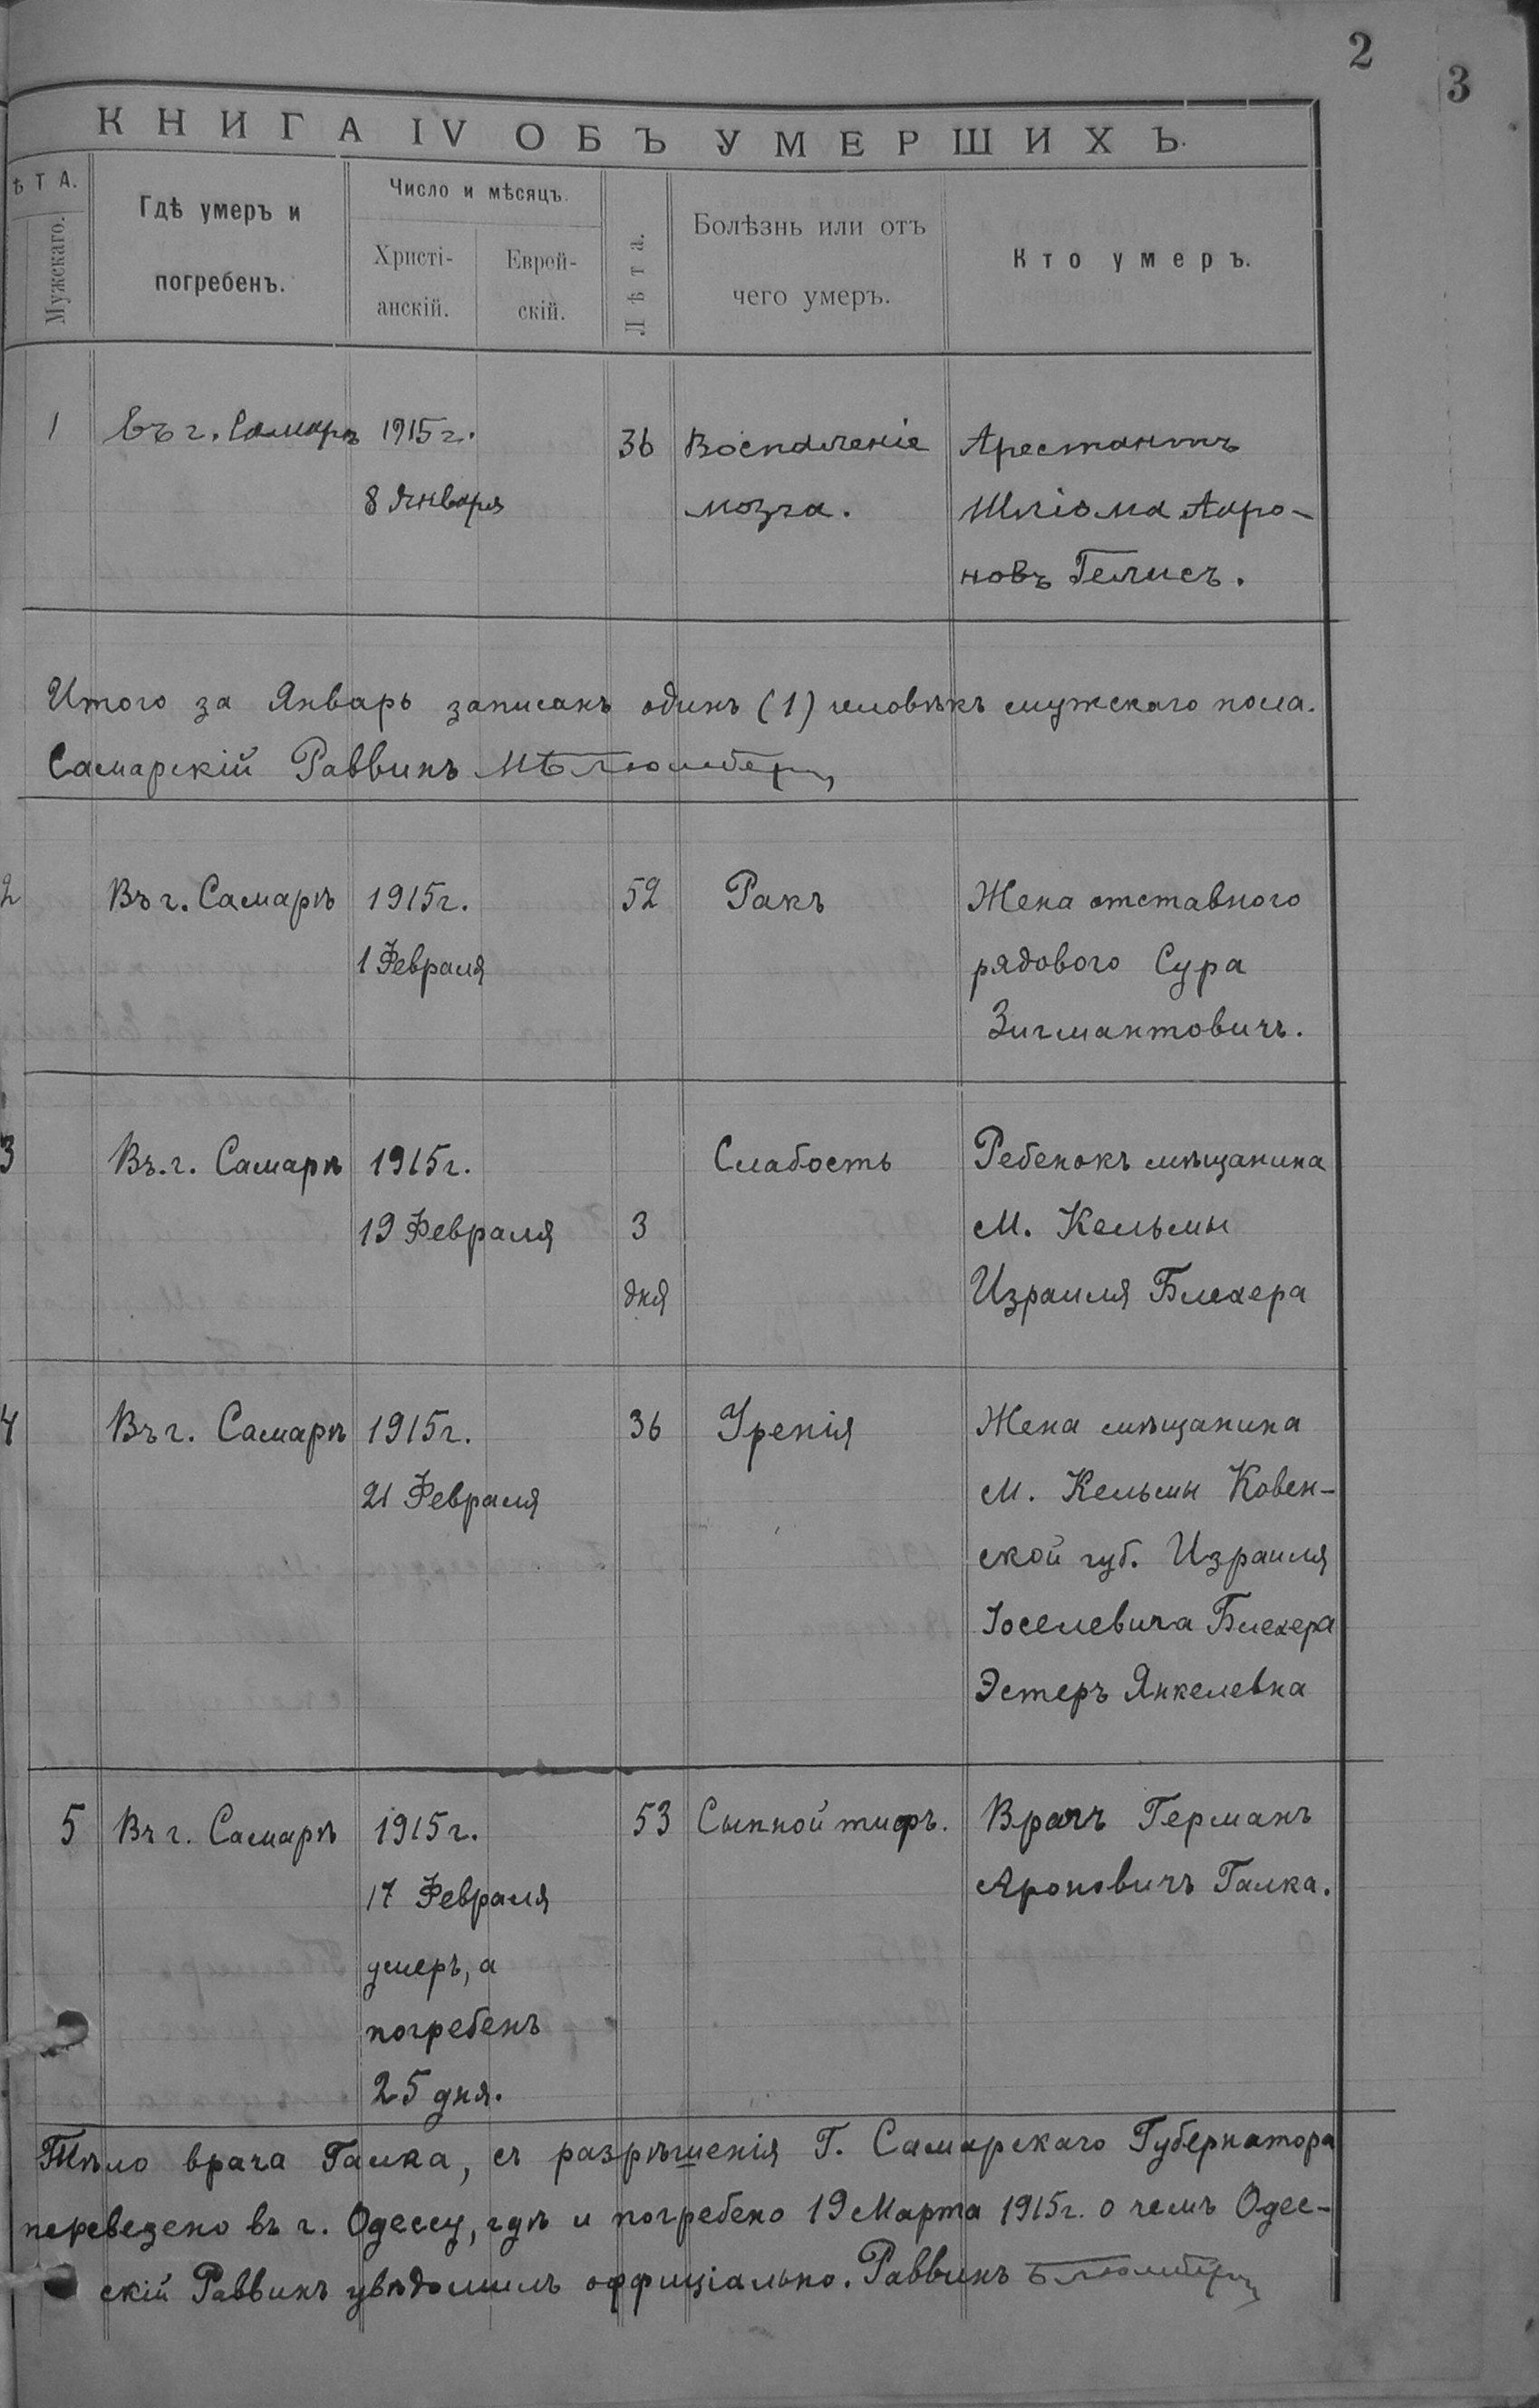 2
3
КНИГА IV ОБЪ УМЕРШИХЪ.
ѢТА.
Мужскаго.
Гдѣ умеръ и
погребенъ.
Число и мѣсяцъ.
Христі-
анскій.
Еврей-
скій.
Лѣта.
Болѣзнь или отъ
чего умеръ.
Кто умеръ.
1 Въ г. Самарѣ 1915 г. 36 Воспаленіе Арестантъ
8 Января мозга. Шліома Ааро-
новъ Гелисъ.
Итого за Январь записанъ одинъ (1) человѣкъ мужскаго пола.
Самарскій Раввинъ
2 Въ г. Самарѣ 1915 г. 52 Ракъ Жена отставного
1 Февраля рядового Сура
Зигмантовичъ.
3 Въ. г. Самарѣ 1915 г. Слабость Ребенокъ мѣщанина
19 Февраля 3 м. Кельмы
дня Израиля Блехера
4 Въ г. Самарѣ 1915 г. 36 Уремія Жена мѣщанина
21 Февраля м. Кельмы Ковен-
ской губ. Израиля
Іоселевича Блехера
Эстеръ Янкелевна
5 Въ г. Самарѣ 1915 г. 53 Сыпной тифъ. Врачъ Германъ
17 Февраля Ароновичъ Галка.
умеръ, а
погребенъ
25 дня.
Тѣло врача Галка, съ разрѣшенія Г. Самарскаго Губернатора
перевезено въ г. Одессу, гдѣ и погребено 19 Марта 1915 г. о чемъ Одес-
скій Раввинъ увѣдомилъ оффиціально. Раввинъ